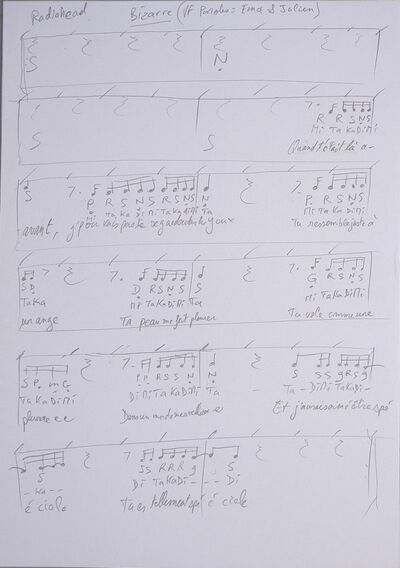 Radiohead Bizarre (VF Paroles = Ema & Julien)
S N
S S R R S N S
Mi Ta Ka Di Mi
Quand t'était là a-
S P R S N S R S N S N P R S N S
Mi Ta Ka Di Mi Ta Ka Di Mi Ta Mi Ta Ka Di Mi
-avant, j'pou vais pas te regarder dans les yeux Tu ressemble juste à
S D D R S N S S G R S N S
Ta Ka Mi Ta Ka Di Mi Ta Mi Ta Ka Di Mi
un ange Ta peau me fait pleurer Tu vole comme une
S P m G P P R S S N N S S S g R S g
Ta Ka Di Mi Di Mi Ta Ka Di Mi Ta - Ta - Di Mi Ta Ka Di -
plume e e Dans un monde merveilleux e Et j'aimerais être spé
S S S R R R g S
- - Ka - - Di Ta Ka Di - - - Di
é ciale Tu es tellement spé é ciale